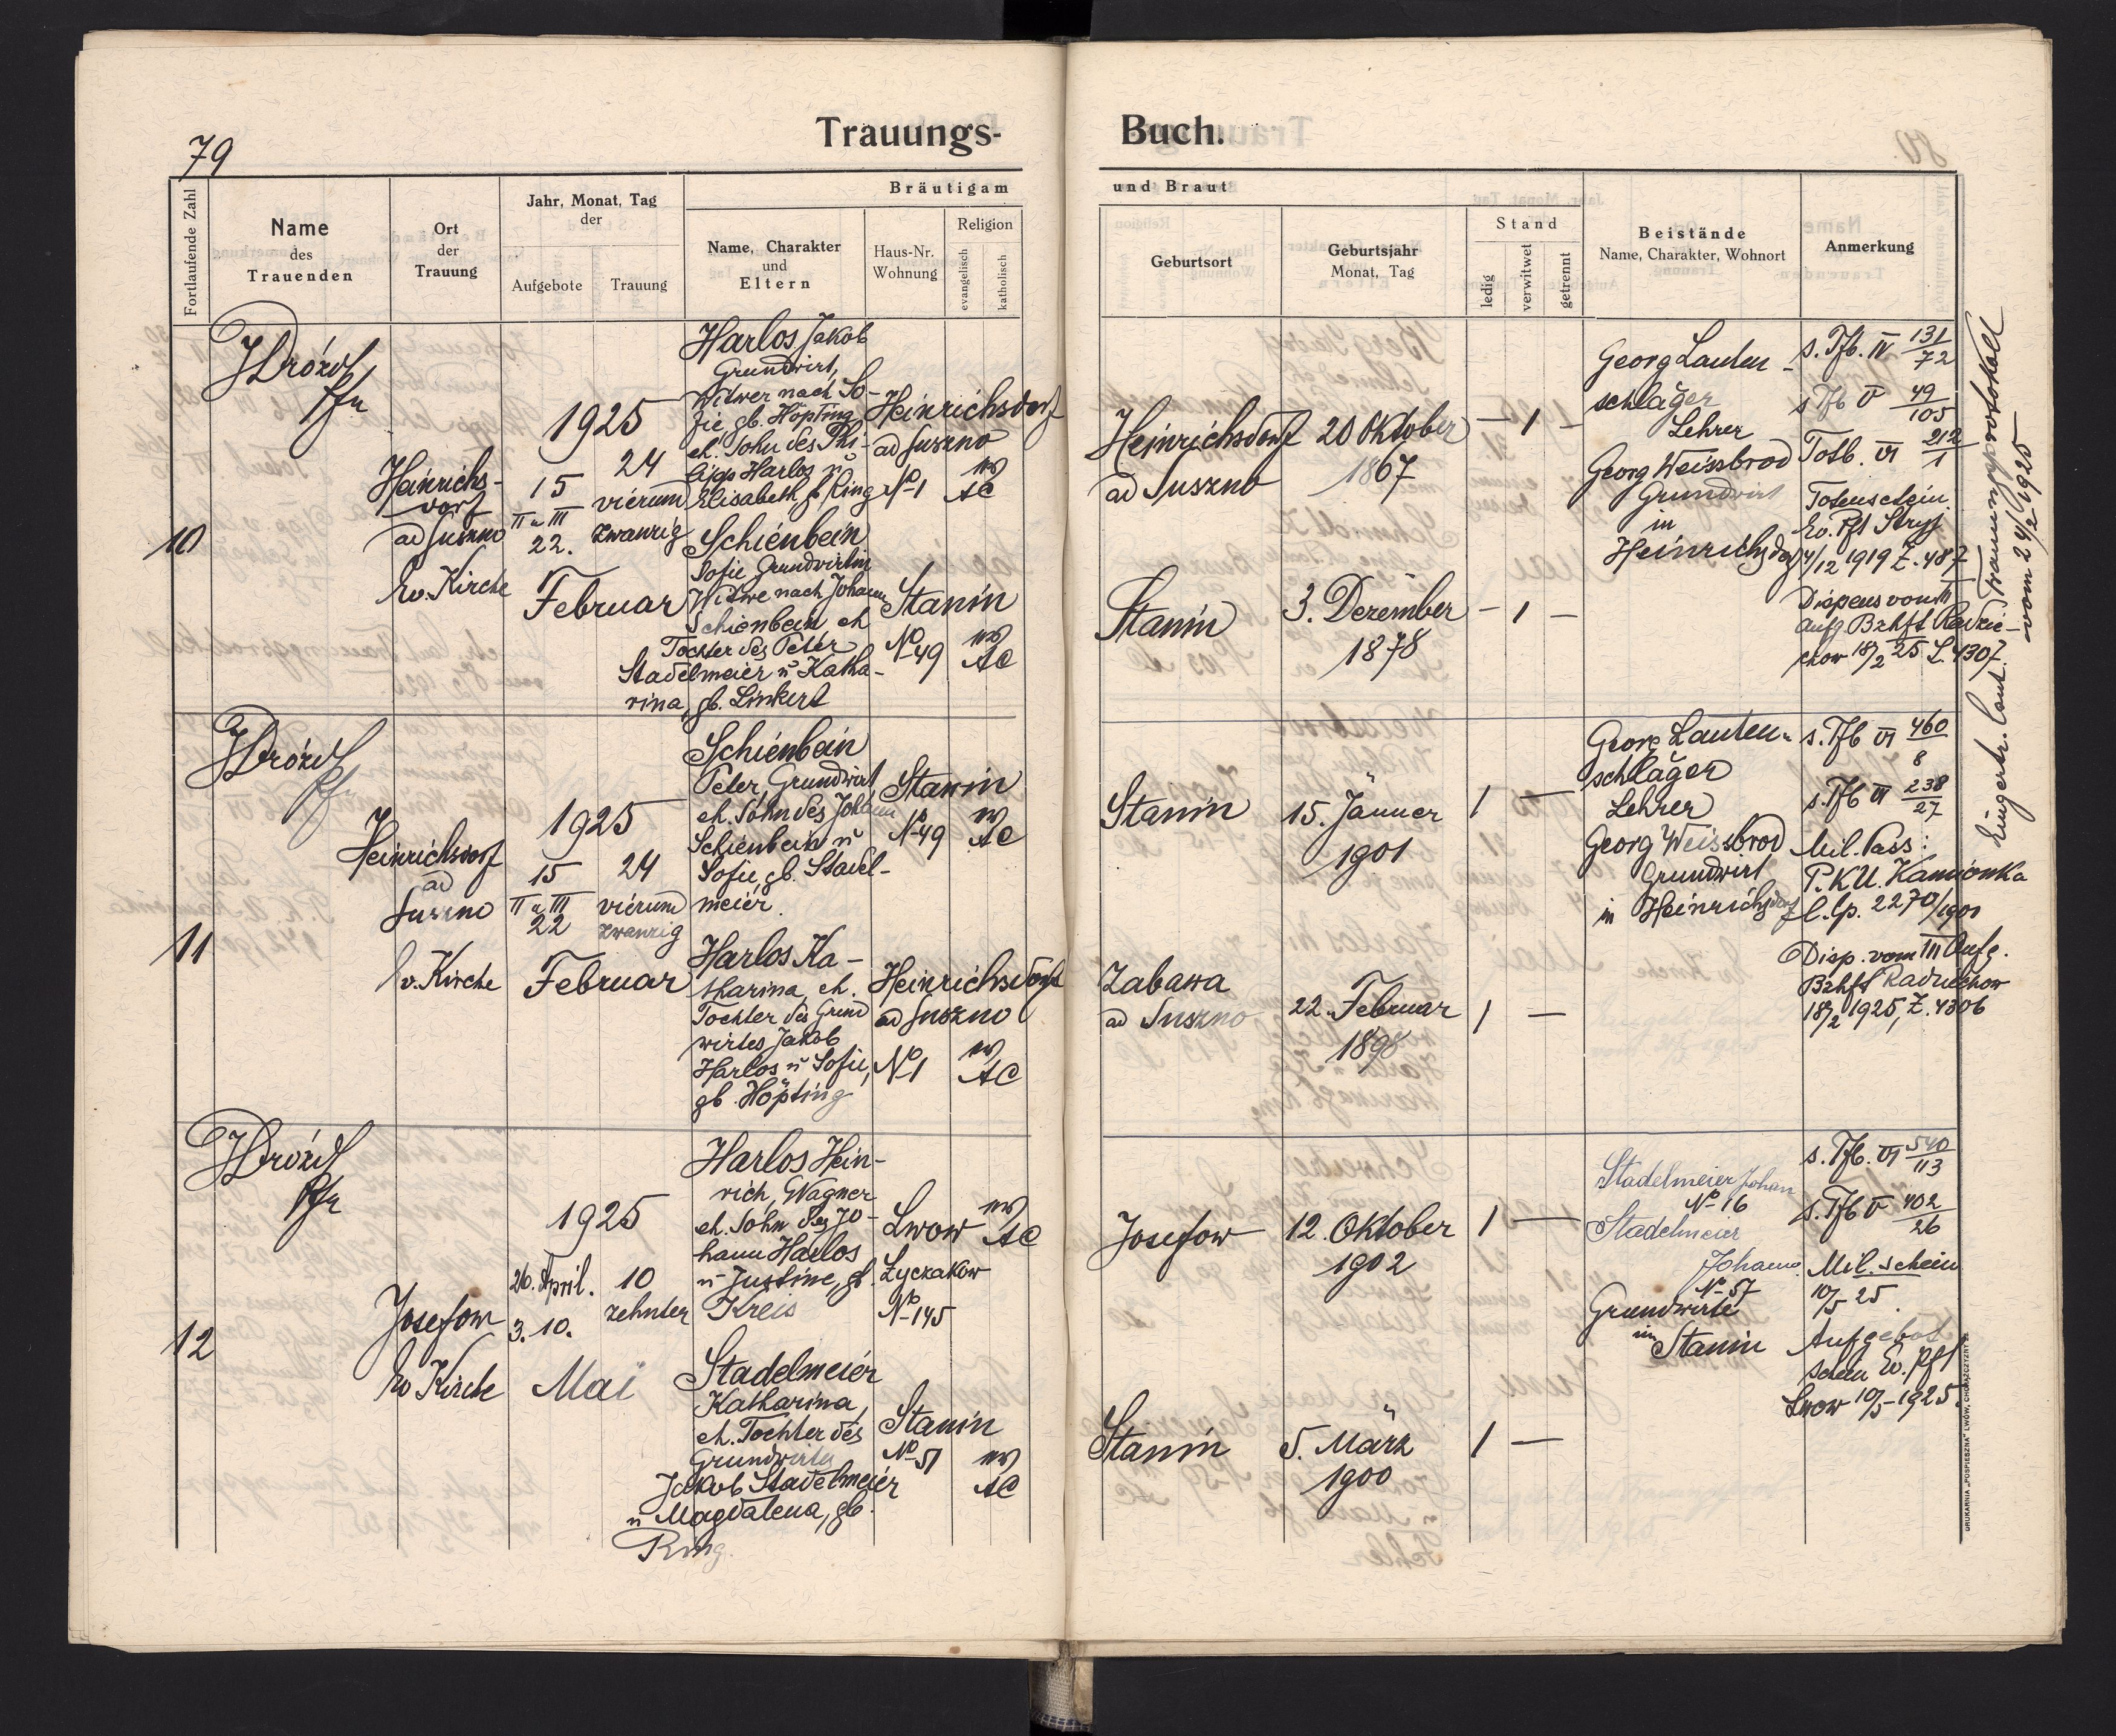 79
Trauungs-
Buch.
Fortlaufende Zahl
Name
des
Trauenden
Ort
der
Trauung
Jahr, Monat, Tag
der
Aufgebote
Trauung
Bräutigam
Name, Charakter
und
Eltern
Haus-Nr.
Wohnung
Religion
evangelisch
katholisch
und Braut
Geburtsort
Geburtsjahr
Monat, Tag
Stand
ledig
verwitwet
getrennt
Beistände
Name, Charakter, Wohnort
Anmerkung
10
JDrózd
Pfr
Heinrichs-
dorf
ad Suszno
Ev. Kirche
1925
15
II u III
22.
24
vierund
zwanzig
Februar
Harlos Jakob
Grundwirt,
Witwer nach So-
fie, gb. Höpting
eh. Sohn des Phi-
lipp Harlos u
Elisabeth gb Ring
Heinrichsdorf
ad Suszno
No 1
ev
AC
Schienbein
Sofie Grundwirtin
Witwe nach Johann
Schienbein eh
Tochter des Peter
Stadelmeier u Katha-
rina, gb. Linkert
Stanin
No 49
ev
AC
Heinrichsdorf
ad Suszno
20 Oktober
1867
— 1 —
Stanin
3. Dezember
1878
— 1 —
Georg Lauten-
schläger
Lehrer
Georg Weissbrod
Grundwirt
in
Heinrichsdorf
s. Tfb. IV 131/72
s Tfb V 49/105
Totb. VI 212/1
Totenschein
Ev. Pft Stryj
4/12 1919 Z. 487
Dispens vom III
Aufg Bzhft Radzie-
chow 18/2 25 L. 4307.
Eingetr. laut Trauungsprotokoll
vom 24/2 1925
11
JDrózd
Pfr
Heinrichsdorf
ad
Suszno
Ev. Kirche
1925
15
II u III
22
24
vierund
zwanzig
Februar
Schienbein
Peter, Grundwirt
eh. Sohn des Johann
Schienbein u
Sofie, gb. Stadel-
meier.
Stanin
No 49
ev
AC
Harlos Ka-
tharina, eh.
Tochter des Grund
wirtes Jakob
Harlos u Sofie,
gb. Höpting
Heinrichsdorf
ad Suszno
No 1
ev
AC
Stanin
15. Jänner
1901
1 —
Zabawa
ad Suszno
22. Februar
1898
1 —
Georg Lauten-
schläger
Lehrer
Georg Weissbrod
Grundwirt
in Heinrichsdorf
s. Tfb VI 460/8
s. Tfb VI 238/27
Mil. Pass:
P.K.U. Kamionka
l. lp. 2270/1901
Disp. vom III Aufg.
Bzhft Radziechow
18/2 1925, Z. 4306
12
JDrózd
Pfr
Josefow
Ev Kirche
1925
26. April.
3. 10.
10
zehnter
Mai
Harlos Hein-
rich, Wagner
eh. Sohn des Jo-
hann Harlos
u Justine, gb.
Kreis
Lwow
Łyczakow
No 145
ev
AC
Stadelmeier
Katharina,
eh. Tochter des
Grundwirtes
Jakob Stadelmeier
u Magdalena, gb.
Ring.
Stanin
No 51
ev
AC
Josefow
12. Oktober
1902
1 —
Stanin
5. März
1900
1 —
Stadelmeier Johan
No 16
Stadelmeier
Johann.
No 57
Grundwirte
in Stanin
s. Tfb. VI 540/113
s. Tfb V 402/26
Mil. schein
10/5 25.
Aufgebot
schein Ev. Pft
Lwow 10/5 1925.
DRUKARNIA „POSPIESZNA" LWÓW, CHORĄŻCZYZNY